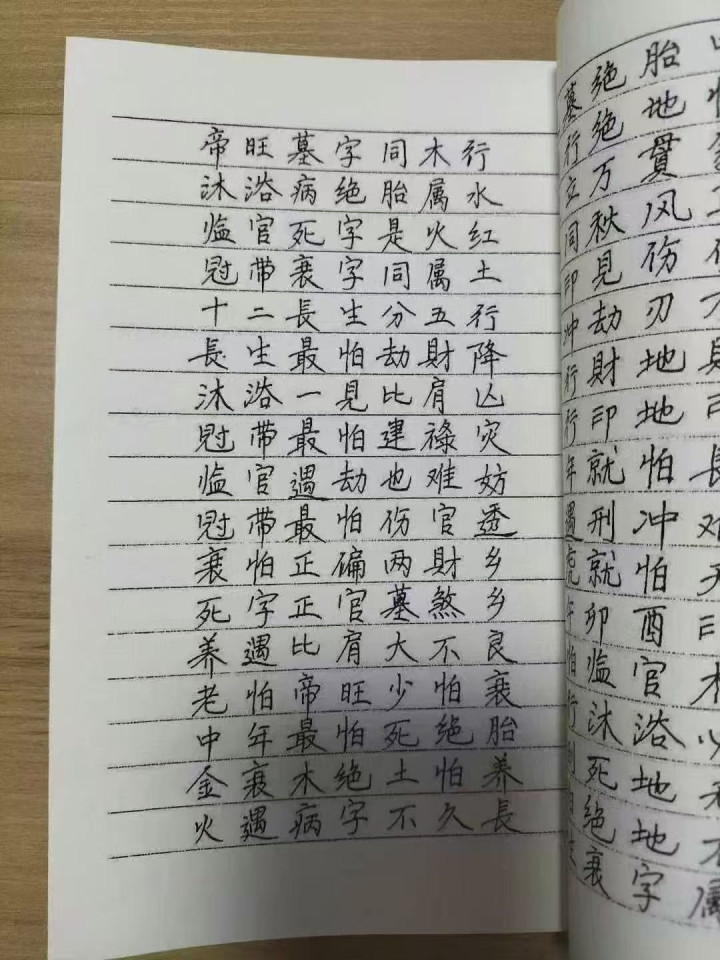 帝旺墓字同木行
沐浴病绝胎属水
临官死字是火红
冠带衰字同属土
十二長生分五行
長生最怕劫財降
沐浴一見比肩凶
冠带最怕建禄灾
临官遇劫也难妨
冠带最怕伤官透
衰怕正偏两財乡
死字正官墓煞乡
养遇比肩大不良
老怕帝旺少怕衰
中年最怕死绝胎
金衰木绝土怕养
火遇病字不久長
墓绝胎
行绝地
立万貫
同秋风
印見伤
冲劫刃
行財地
行印地
年就怕長
遇刑冲难
就怕
卯酉
怕临官木
行沐浴
死地
绝地
衰字属